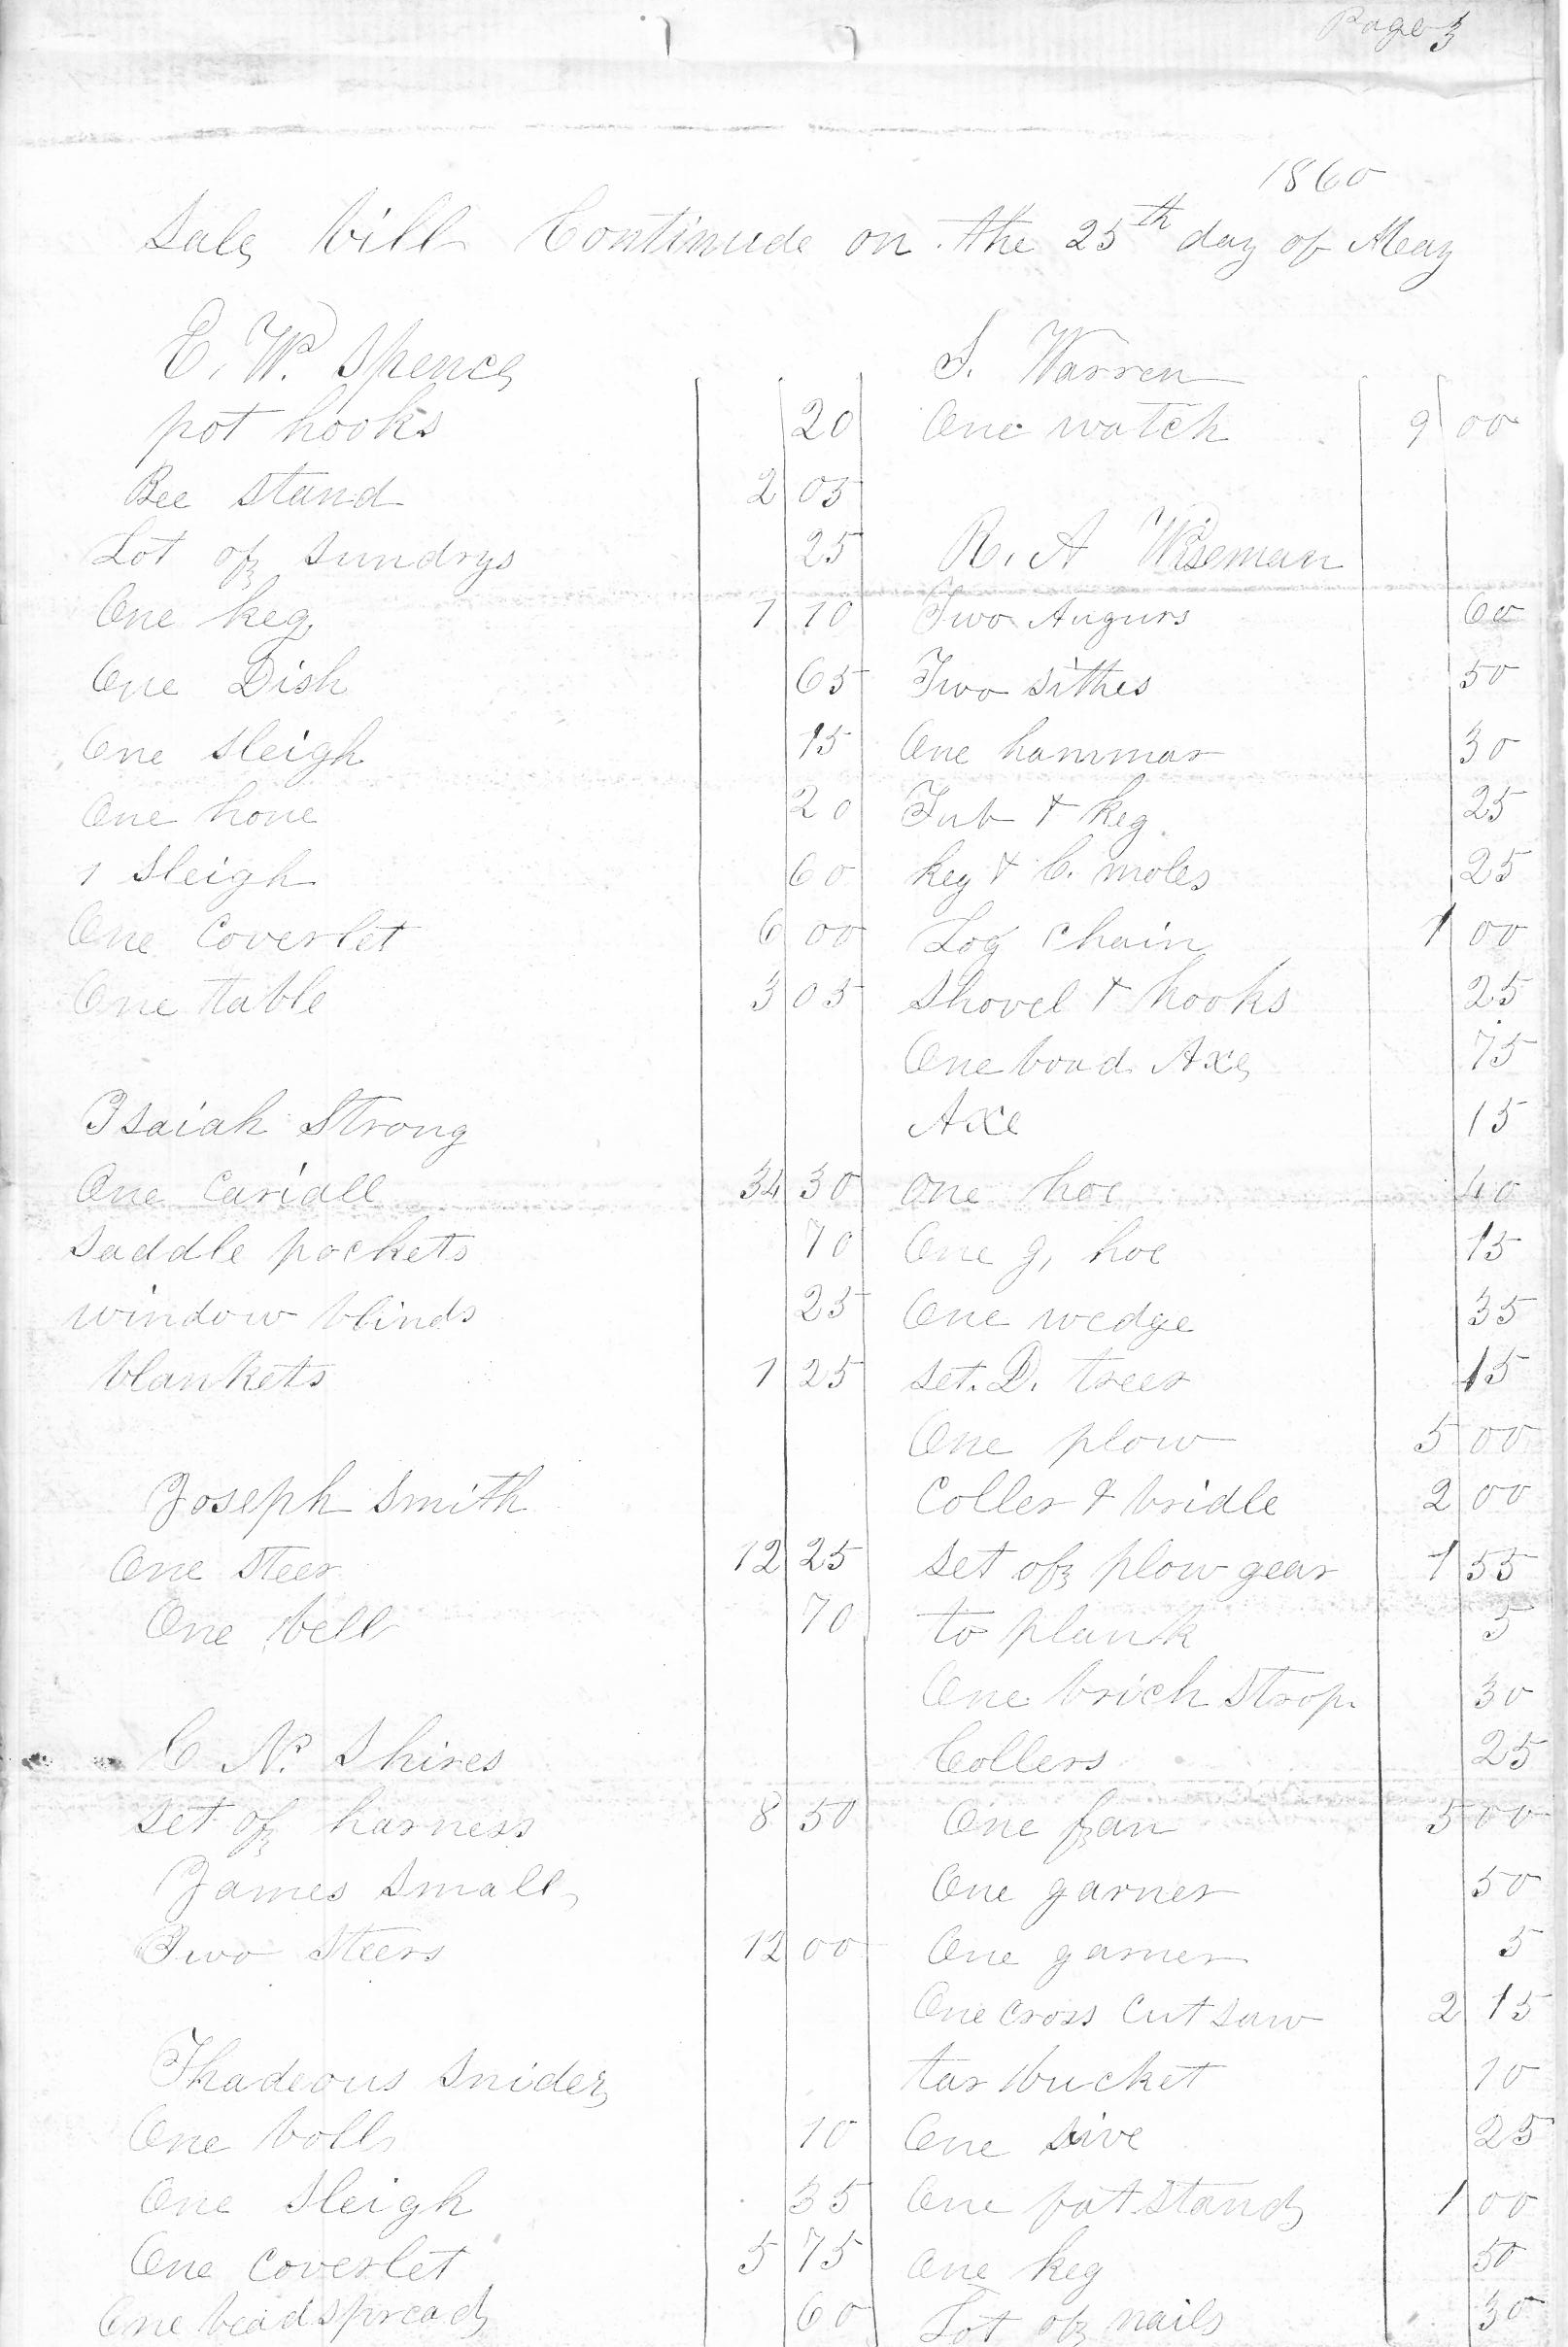 Page 3
1860
Sale bill Continude on the 25th day of May
E. W. Spence
pot hooks 20
Bee stand 2 05
Lot of sundrys 25
One keg 1 10
One Dish 65
One sleigh 15
One hone 20
1 Sleigh 60
One Coverlet 6 00
One table 3 05
Isaiah Strong
One Cariall 34 30
Saddle pockets 70
window blinds 25
blankets 1 25
Joseph Smith
One Steer 12 25
One bell 70
C N. Shires
Set of harness 8 50
James Small
Two Steers 12 00
Thadeous Snider
One boll 10
One Sleigh 35
One Coverlet 5 75
One beadspread 60
S. Warren
One watch 9 00
R. A Wiseman
Two Augurs 60
Two sithes 50
One hammar 30
Tub & keg 25
keg & C. moles 25
Log Chain 1 00
Shovel & hooks 25
One boad Axe 75
Axe 15
One hoe 40
One g, hoe 15
One wedge 35
Set. D. trees 15
One plow 5 00
Coller & bridle 2 00
Set of plow gear 1 55
to plank 5
One brich strop. 30
Collers 25
One fan 5 00
One garner 50
One garner 5
One cross Cut saw 2 15
tar bucket 10
One sive 25
One fat stand 1 00
One keg 50
Lot of nails 30